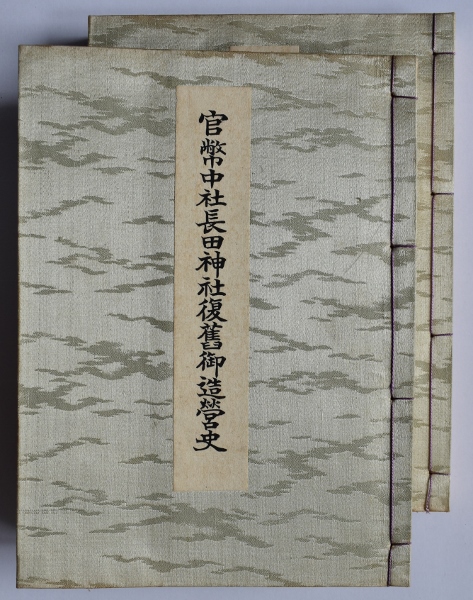 官幣中社長田神社復舊御造營史